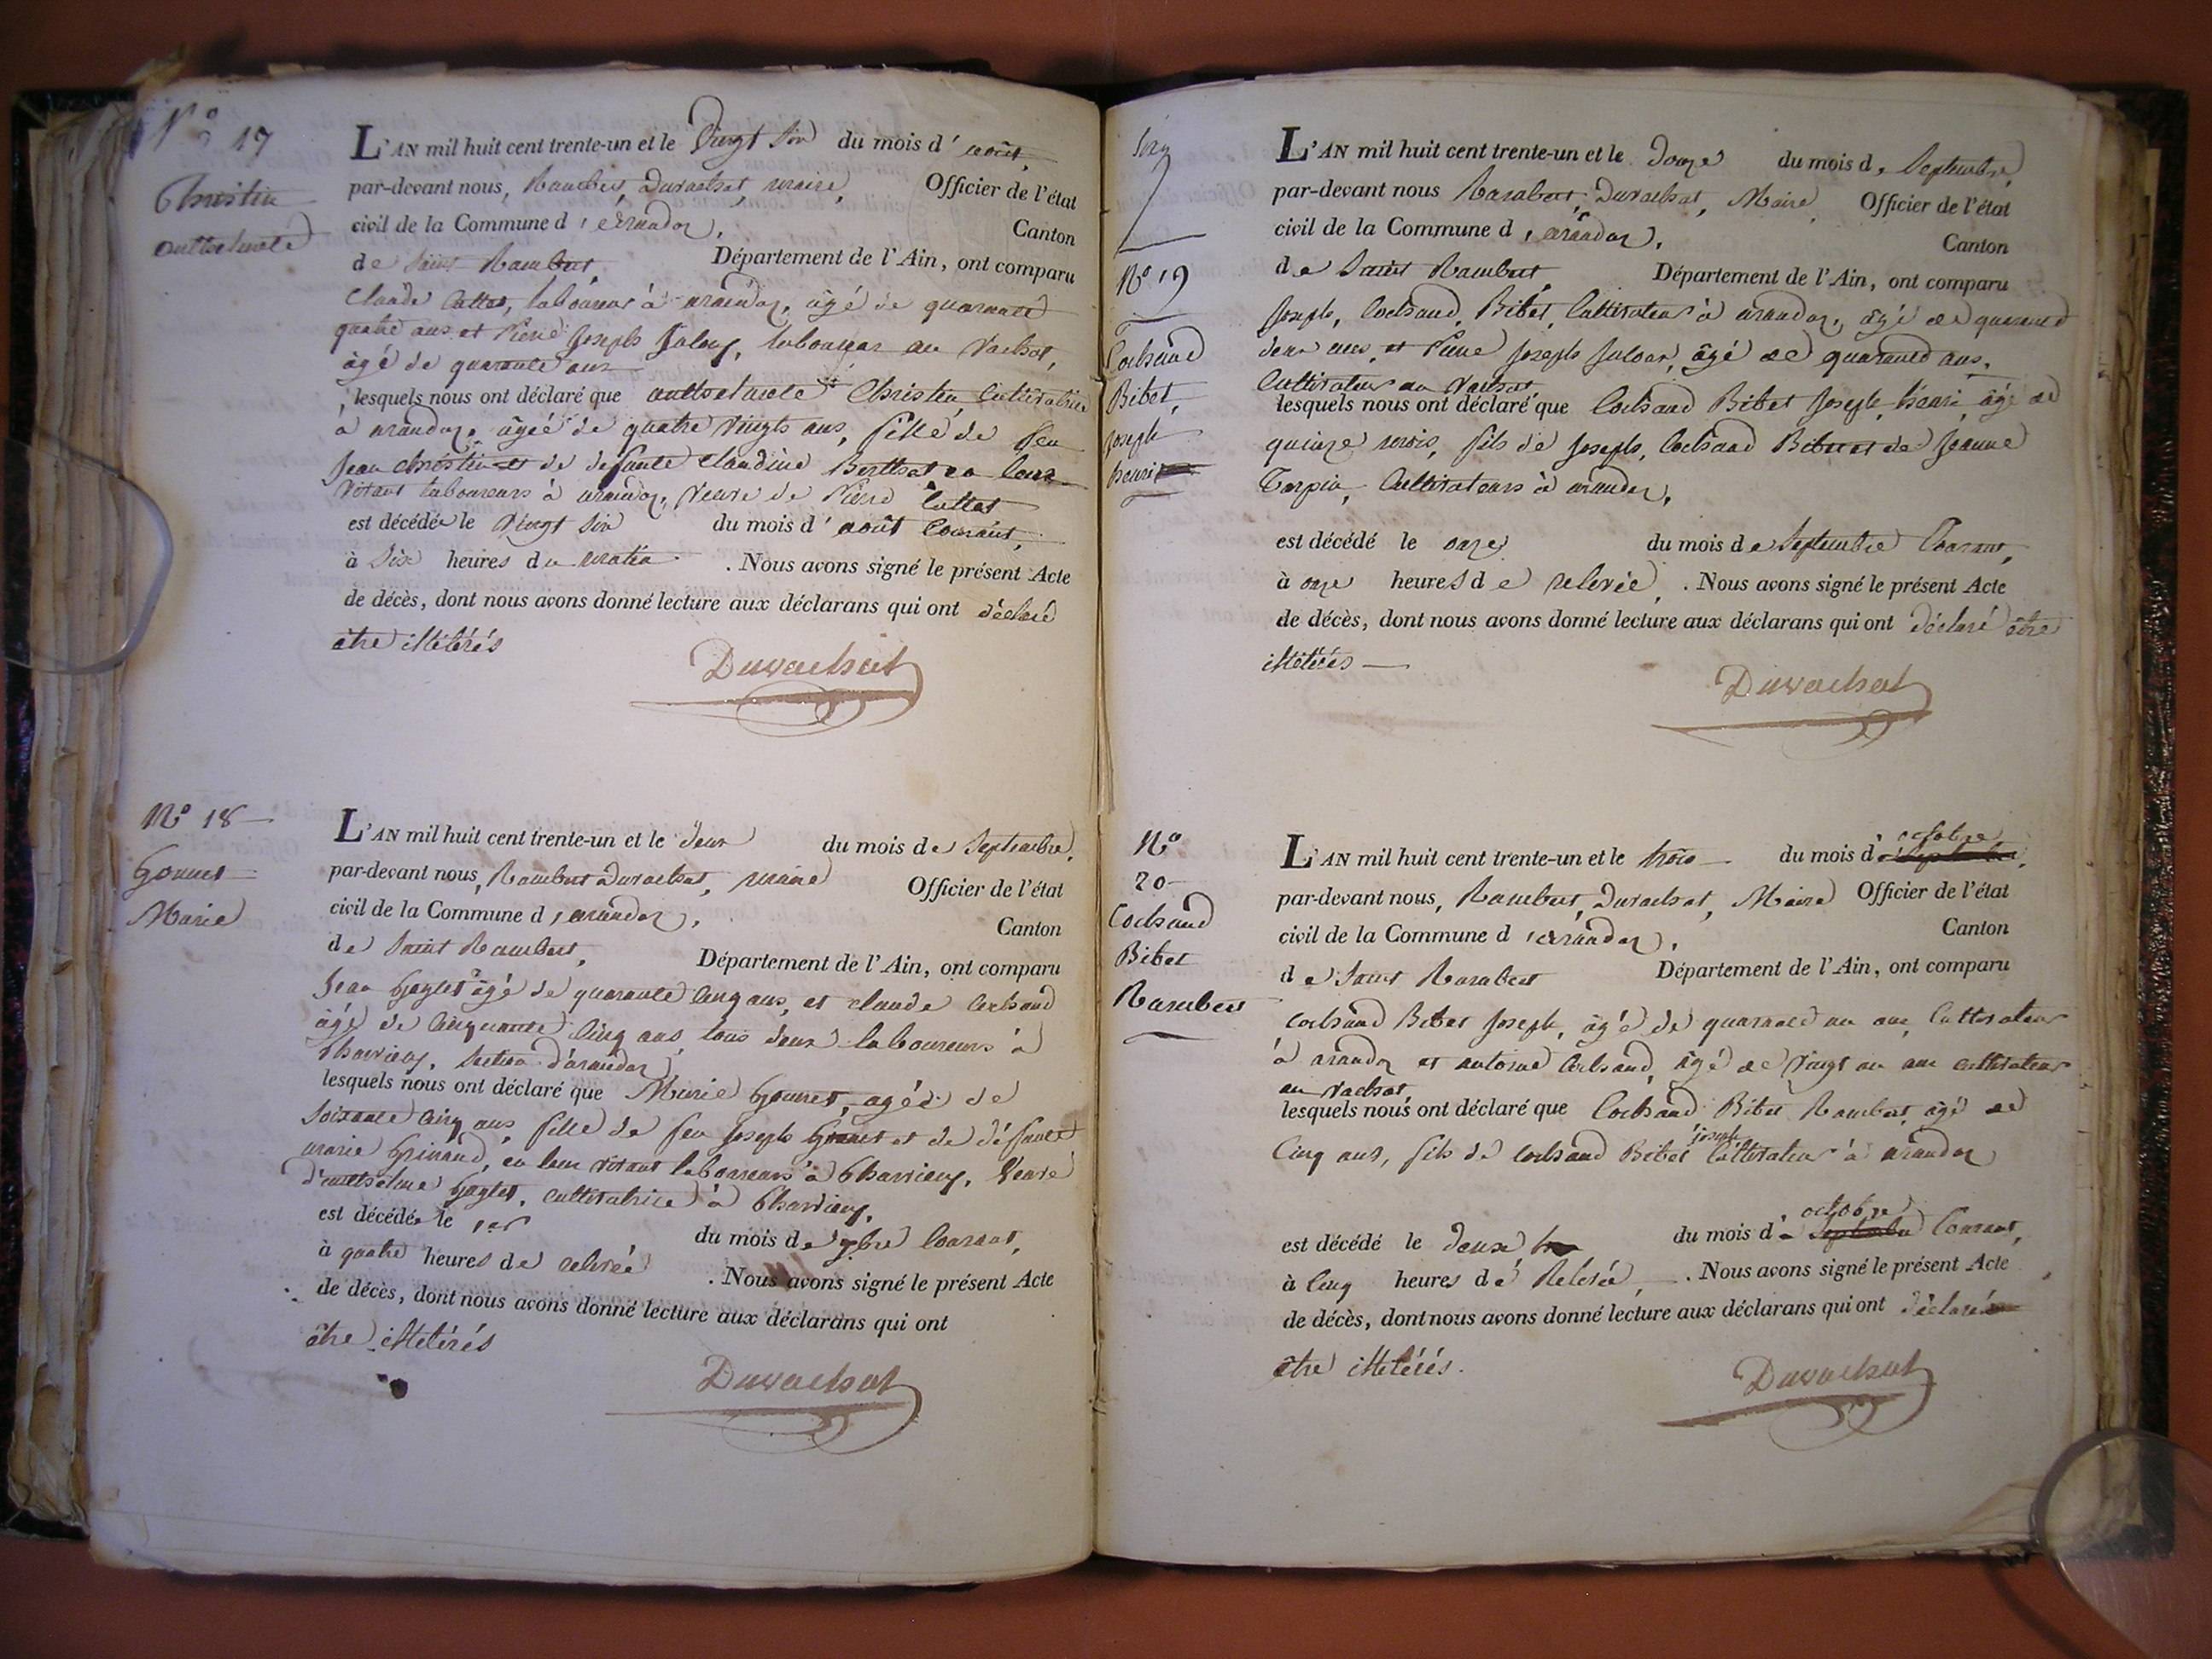 N.º 17
Christin
anthelmete
L'AN mil huit cent trente-un et le Vingt Six du mois d' août,
par-devant nous, Rambert Duvachat, maire, Officier de l'état
civil de la Commune d'arandaz, Canton
de Saint Rambert, Département de l'Ain, ont comparu
Claude Cuttat, laboureur à arandaz, âgé de quarante
quatre ans et Pierre Joseph laboureur au Vachat,
âgé de quarante ans
lesquels nous ont déclaré que anthelmete Christin Cultivatrice
à arandaz, âgée de quatre Vingts ans, fille de feu
Jean Christin et de defunte Claudine Berthet en leur
Vivant laboureurs à arandaz, veuve de Pierre Cuttat
est décédée le Vingt Six du mois d'août Courant,
à Six heures du matin . Nous avons signé le présent Acte
de décès, dont nous avons donné lecture aux déclarans qui ont déclaré
être illétérés
Duvachat
Nº 18
Gonnet
Marie
L'AN mil huit cent trente-un et le deux du mois de Septembre,
par-devant nous, Rambert Duvachat, maire Officier de l'état
civil de la Commune d'arandaz, Canton
de Saint Rambert, Département de l'Ain, ont comparu
Jean Gaglet âgé de quarante Cinq ans, et claude Cochaud
âgé de Cinquante Cinq ans, tous deux laboureurs à
Charvieux, Section d'arandaz
lesquels nous ont déclaré que Marie Gonnet, agée de
Soixante Cinq ans, fille de feu Joseph Gonnet et de défunte
marie Grinand, en leur vivant laboureurs à Charvieux, Veuve
d'anthelme Gaglet, cultivatrice à Charvieux,
est décédée le 1er du mois de 7bre Courant,
à quatre heures de relevée . Nous avons signé le présent Acte
de décès, dont nous avons donné lecture aux déclarans qui ont
être illétérés
Duvachat
Nº 19
Cochaud
Bibet,
Joseph
henri
L'AN mil huit cent trente-un et le douze du mois de Septembre,
par-devant nous Rambert, Duvachat, Maire, Officier de l'état
civil de la Commune d'arandaz, Canton
de Saint Rambert, Département de l'Ain, ont comparu
Joseph, Cochaud, Bibet, Cultivateur à arandaz, âgé de quarante
deux ans, et Pierre Joseph âgé de quarante ans,
Cultivateur au Vachat
lesquels nous ont déclaré que Cochaud Bibet Joseph henri, âgé de
quinze mois, fils de Joseph, Cochaud Bibet et de Jeanne
Torpin, Cultivateurs à arandaz,
est décédé le onze du mois de Septembre Courant,
à onze heures de relevée, . Nous avons signé le présent Acte
de décès, dont nous avons donné lecture aux déclarans qui ont déclaré être
illétérés
Duvachat
Nº
20
Cochaud
Bibet
Rambert
L'AN mil huit cent trente-un et le trois du mois d'octobre septembre,
par-devant nous, Rambert, Duvachat, Maire Officier de l'état
civil de la Commune d'arandaz, Canton
de Saint Rambert Département de l'Ain, ont comparu
Cochaud Bibet Joseph, âgé de quarante un an, Cultivateur
à arandaz et antoine Cochaud, âgé de Vingt un an cultivateur
au Vachat,
lesquels nous ont déclaré que Cochaud Bibet Rambert, âgé de
Cinq ans, fils de cochaud Bibet joseph Cultivateur à arandaz
est décédé le deux du mois d'octobre septembre Courant,
à Cinq heures de Relevée, . Nous avons signé le présent Acte
de décès, dont nous avons donné lecture aux déclarans qui ont déclaré
être illétérés.
Duvachat